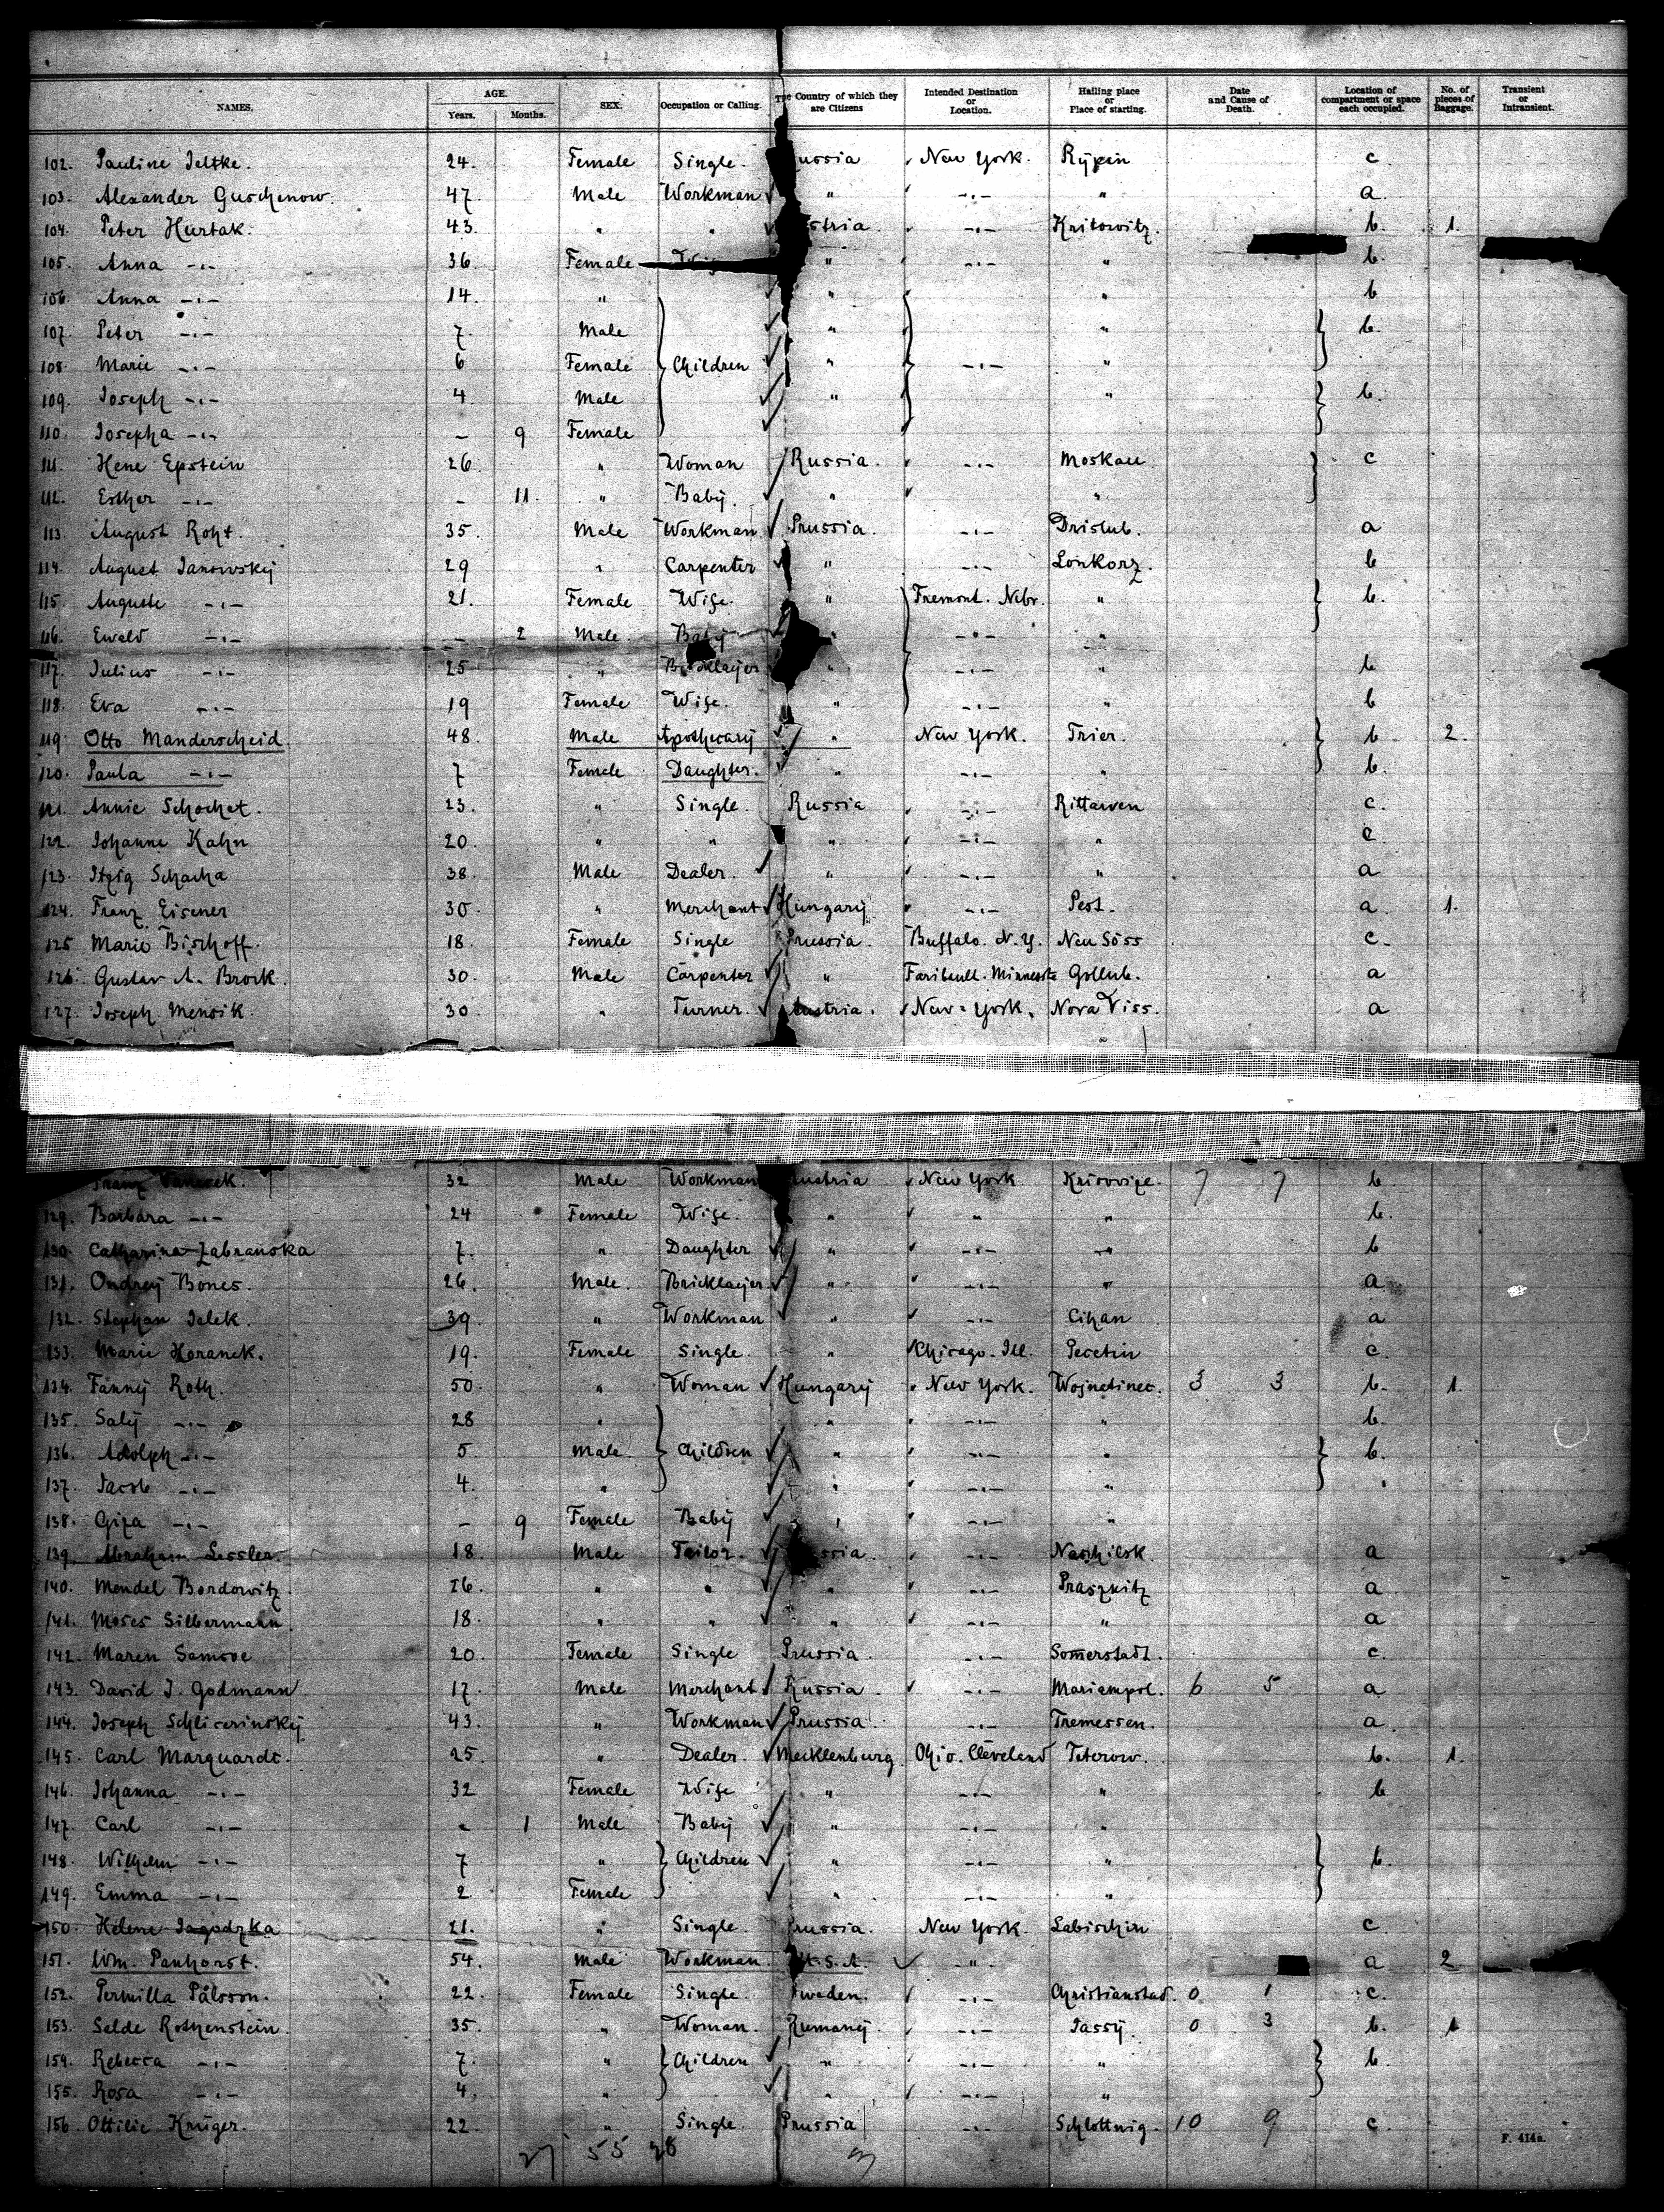 NAMES. AGE. SEX. Occupation or Calling. The Country of which they are Citizens Intended Destination or Location. Hailing place or Place of starting. Date and Cause of Death. Location of compartment or space each occupied. No. of pieces of Baggage. Transient or Intransient.
Years. Months.
102. Pauline Jeltke. 24. Female Single. ussia New York. Rypin c
103. Alexander Guschenow. 47 Male Workman " -"- " a
104. Peter Hurtak. 43. " " stria -"- Kritowitz. b. 1.
105. Anna -"- 36 Female " -"- " b.
106. Anna -"- 14. " " " b
107. Peter -"- 7. Male " " b.
108. Marie -"- 6 Female Children " -"- "
109. Joseph -"- 4. Male " " b.
110. Josepha -"- - 9 Female
111. Hene Epstein 26. " Woman Russia. -"- Moskau c
112. Esther -"- - 11. " Baby. " "
113. August Roht. 35. Male Workman Prussia. -"- Drislub. a
114. August Janowsky 29 " Carpenter " -"- Lonkorz. b
115. Auguste -"- 21. Female Wife. " Fremont. Nebr. " b.
116. Ewald -"- - 2 Male Baby " -"- "
117. Julius -"- 25 " Bricklayer " -"- " b
118. Eva -"- 19 Female Wife. " -"- " b
119. Otto Manderscheid 48. Male Apothecary " New York. Trier. b 2.
120. Paula -"- 7 Female Daughter. " -"- " b.
121. Annie Schochet. 23. " Single Russia -"- Rittawen c.
122. Johanne Kahn 20. " " " -"- " c.
123. Itzig Schacha 38. Male Dealer. " -"- " a
124. Franz Eisener 30. " Merchant Hungary -"- Pest. a 1.
125 Marie Bischoff. 18. Female Single Prussia. Buffalo. N.Y. Neu Söss c.
126. Gustav A. Brock. 30. Male Carpenter " Faribault. Minnesota Gollub. a
127. Joseph Mensik. 30 " Turner. Austria. New-York. Nova Viss. a
Franz 32 Male Workman ustria New York Krisovize. 7 7 b.
129. Barbara -"- 24 Female Wife. " " " b.
130. Catharina Zabranska 7. " Daughter " -"- " b
131. Ondrey Bones. 26. Male. Bricklayer " -"- " a
132. Stephan Jelek. 39. " Workman " -"- Cihan a
133. Marie Horanek. 19. Female Single. " Chicago. Ill. Pecetin c.
134. Fanny Roth. 50. " Woman Hungary New York. Wojnetinec. 3 3 b. 1.
135. Saly -"- 28 " " -"- " b.
136. Adolph -"- 5. Male Children " -"- " b.
137. Jacob -"- 4. " " -"- "
138. Giza -"- - 9 Female Baby " -"- "
139. Abraham Lessler. 18. Male Tailor. ssia. -"- Naschilsk. a
140. Mendel Bordowitz. 26. " " " -"- Praszkitz a
141. Moses Silbermann. 18. " " " -"- " a
142. Maren Samsoe 20. Female Single Prussia. -"- Somerstadt. c.
143. David J. Godmann 17. Male Merchant Russia -"- Mariempol. 6 5 a
144. Joseph Schlicerinsky 43. " Workman Prussia. -"- Tremessen. a.
145. Carl Marquardt. 25. " Dealer. Mecklenburg Ohio. Cleveland Teterow. b. 1.
146. Johanna -"- 32 Female Wife " -"- " b
147. Carl -"- - 1 Male Baby " -"- "
148. Wilhelm -"- 7 " Children " -"- " b.
149. Emma -"- 2 Female " -"- "
150. Helene Jagodzka 21. " Single. Prussia. New York. Labischin c
151. Wm. Panhorst. 54. Male Workman. U.S.A. " a 2
152. Permilla Pålsson. 22. Female Single. Sweden. -"- Christianstad. 0 1 c.
153. Selde Rothenstein. 35. " Woman. Rumany. -"- Jassy. 0 3 b. 1
154. Rebecca -"- 7. " Children " -"- " b.
155. Rosa -"- 4. " " -"- "
156 Ottilie Krüger. 22. " Single. Prussia -"- Schlottnig. 10 9 c.
27 55 28
F. 414a.